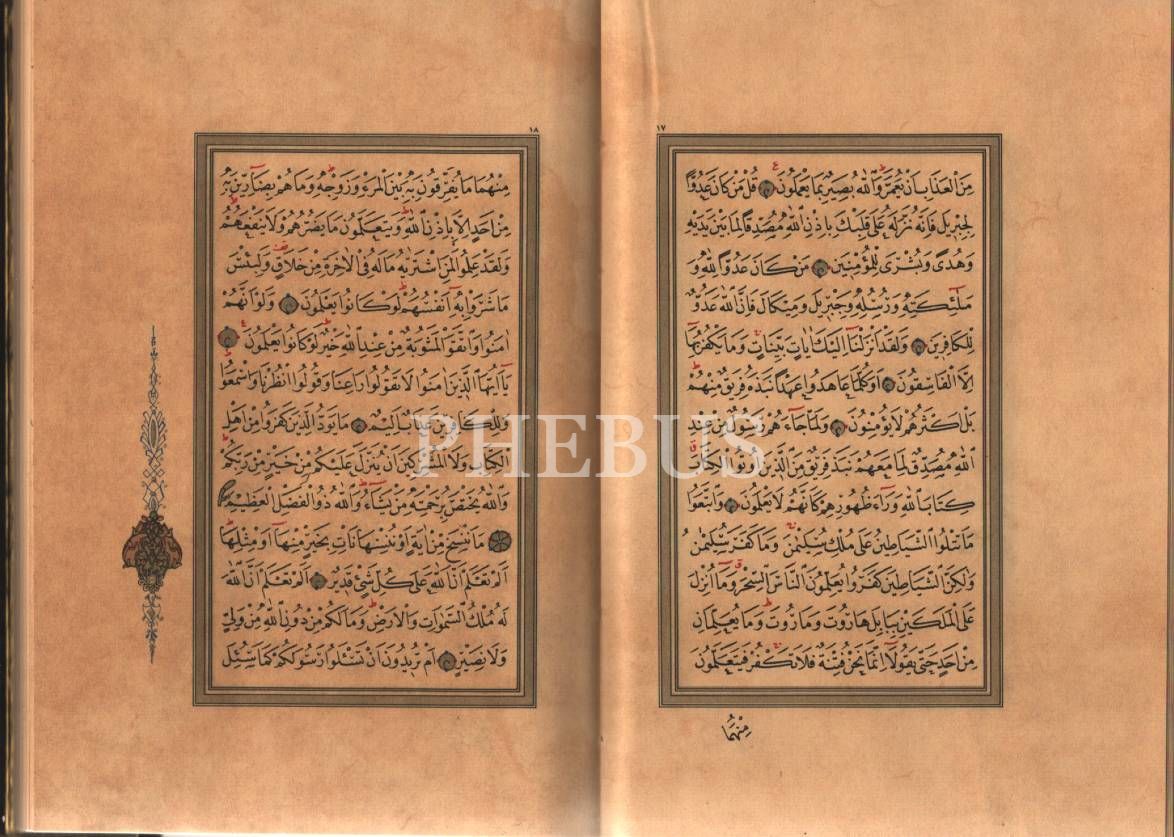 ١٧
مِنَ الْعَذَابِ اَنْ يُعَمَّرَ وَاللّٰهُ بَصِيرٌ بِمَا يَعْمَلُونَ قُلْ مَنْ كَانَ عَدُوًّا
لِجِبْرِيلَ فَاِنَّهُ نَزَّلَهُ عَلٰى قَلْبِكَ بِاِذْنِ اللّٰهِ مُصَدِّقًا لِمَا بَيْنَ يَدَيْهِ
وَهُدًى وَبُشْرٰى لِلْمُؤْمِنِينَ مَنْ كَانَ عَدُوًّا لِلّٰهِ وَ
مَلٰئِكَتِهِ وَرُسُلِهِ وَجِبْرِيلَ وَمِيكَالَ فَاِنَّ اللّٰهَ عَدُوٌّ
لِلْكَافِرِينَ وَلَقَدْ اَنْزَلْنَا اِلَيْكَ اٰيَاتٍ بَيِّنَاتٍ وَمَا يَكْفُرُ بِهَا
اِلَّا الْفَاسِقُونَ اَوَكُلَّمَا عَاهَدُوا عَهْدًا نَبَذَهُ فَرِيقٌ مِنْهُمْ
بَلْ اَكْثَرُهُمْ لَا يُؤْمِنُونَ وَلَمَّا جَاءَهُمْ رَسُولٌ مِنْ عِنْدِ
اللّٰهِ مُصَدِّقٌ لِمَا مَعَهُمْ نَبَذَ فَرِيقٌ مِنَ الَّذِينَ اُوتُوا الْكِتَابَ
كِتَابَ اللّٰهِ وَرَاءَ ظُهُورِهِمْ كَاَنَّهُمْ لَا يَعْلَمُونَ وَاتَّبَعُوا
مَا تَتْلُوا الشَّيَاطِينُ عَلٰى مُلْكِ سُلَيْمٰنَ وَمَا كَفَرَ سُلَيْمٰنُ
وَلٰكِنَّ الشَّيَاطِينَ كَفَرُوا يُعَلِّمُونَ النَّاسَ السِّحْرَ وَمَا اُنْزِلَ
عَلَى الْمَلَكَيْنِ بِبَابِلَ هَارُوتَ وَمَارُوتَ وَمَا يُعَلِّمَانِ
مِنْ اَحَدٍ حَتّٰى يَقُولَا اِنَّمَا نَحْنُ فِتْنَةٌ فَلَا تَكْفُرْ فَيَتَعَلَّمُونَ
مِنْهُمَا
١٨
مِنْهُمَا مَا يُفَرِّقُونَ بِهِ بَيْنَ الْمَرْءِ وَزَوْجِهِ وَمَا هُمْ بِضَارِّينَ بِهِ
مِنْ اَحَدٍ اِلَّا بِاِذْنِ اللّٰهِ وَيَتَعَلَّمُونَ مَا يَضُرُّهُمْ وَلَا يَنْفَعُهُمْ
وَلَقَدْ عَلِمُوا لَمَنِ اشْتَرٰيهُ مَا لَهُ فِى الْاٰخِرَةِ مِنْ خَلَاقٍ وَلَبِئْسَ
مَا شَرَوْا بِهِ اَنْفُسَهُمْ لَوْ كَانُوا يَعْلَمُونَ وَلَوْ اَنَّهُمْ
اٰمَنُوا وَاتَّقَوْا لَمَثُوبَةٌ مِنْ عِنْدِ اللّٰهِ خَيْرٌ لَوْ كَانُوا يَعْلَمُونَ
يَا اَيُّهَا الَّذِينَ اٰمَنُوا لَا تَقُولُوا رَاعِنَا وَقُولُوا انْظُرْنَا وَاسْمَعُوا
وَلِلْكَافِرِينَ عَذَابٌ اَلِيمٌ مَا يَوَدُّ الَّذِينَ كَفَرُوا مِنْ اَهْلِ
الْكِتَابِ وَلَا الْمُشْرِكِينَ اَنْ يُنَزَّلَ عَلَيْكُمْ مِنْ خَيْرٍ مِنْ رَبِّكُمْ
وَاللّٰهُ يَخْتَصُّ بِرَحْمَتِهِ مَنْ يَشَاءُ وَاللّٰهُ ذُو الْفَضْلِ الْعَظِيمِ
مَا نَنْسَخْ مِنْ اٰيَةٍ اَوْ نُنْسِهَا نَأْتِ بِخَيْرٍ مِنْهَا اَوْ مِثْلِهَا
اَلَمْ تَعْلَمْ اَنَّ اللّٰهَ عَلٰى كُلِّ شَىْءٍ قَدِيرٌ اَلَمْ تَعْلَمْ اَنَّ اللّٰهَ
لَهُ مُلْكُ السَّمٰوَاتِ وَالْاَرْضِ وَمَا لَكُمْ مِنْ دُونِ اللّٰهِ مِنْ وَلِىٍّ
وَلَا نَصِيرٍ اَمْ تُرِيدُونَ اَنْ تَسْئَلُوا رَسُولَكُمْ كَمَا سُئِلَ
PHEBUS